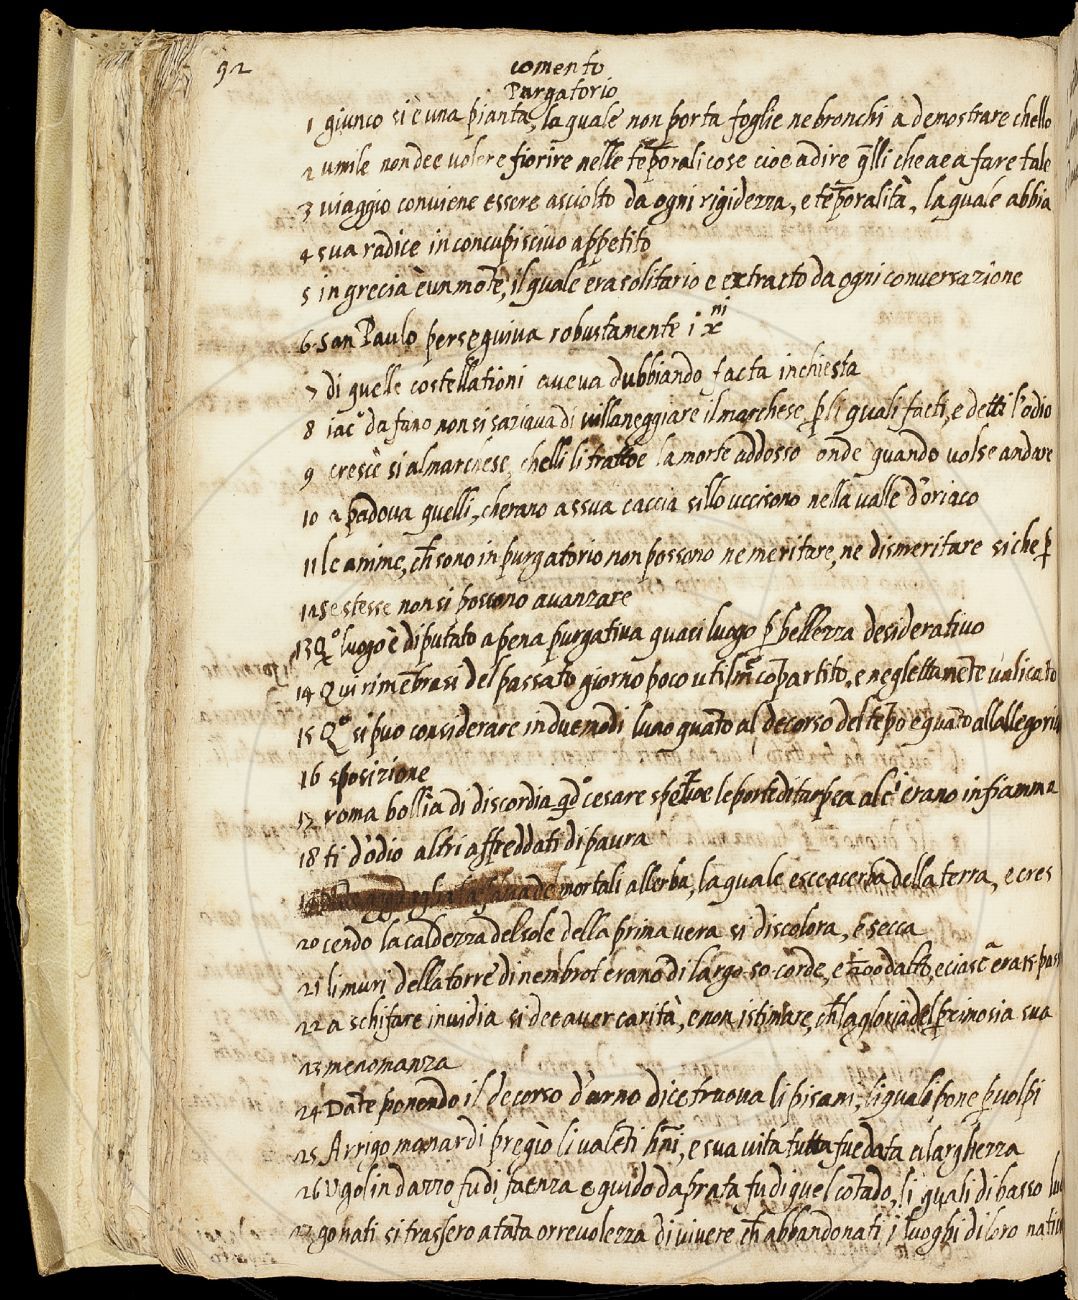 92
comento
Purgatorio
1 giunco si è una pianta, la quale non porta foglie ne bronchi a demostrare chello
2 umile non dee volere fiorire nelle tēporali cose cioe a dire q̄lli che ae a fare tale
3 viaggio conviene essere asciolto da ogni rigidezza, e tēporalità, la quale abbia
4 sua radice in concupiscivo appetito
5 in grecia è un mōte, il quale era solitario e extracto da ogni conversazione
6 San Paulo perseguiva robustamente i xp̄ni
7 di quelle costellationi aveva dubbiando facta inchiesta
8 iac° da fano non si saziava di villaneggiare il marchese, p̱ li quali facti, e detti l'odio
9 crescè si al marchese, chelli li trattoe la morte addosso onde quando volse andare
10 a padova quelli, cherano a ssua caccia sillo uccisono nella valle d'oriaco
11 le anime, ch̄ sono in purgatorio non possono ne meritare, ne dismeritare siche p̱
12 se stesse non si possono avanzare
13 Q° luogo è diputato a pena purgativa quasi luogo p̱ bellezza desiderativo
14 Qui rimēbrasi del passato giorno poco utilm̄ cōpartito, e neglettamēte valicato
15 Q° si puo considerare in due modi luno quāto al decorso del tēpo e quāto all allegoria
16 sposizione
17 roma bollia di discordia qd° cesare le porte di tarpea alc̄i erano infiamma
18 ti d'odio altri affreddati di paura
19 mortali allerba, la quale esce acerba della terra, e cres
20 cendo la caldezza del sole della primavera si discolora, e secca
21 li muri della torre di nembrot erano di largo 50 corde, e 200 d'atto, e ciasc̄ era 15 pas
22 a schifare invidia si dee aver carità, e non istimare, ch̄ la gloria del p̱rimo sia sua
23 menomanza
24 Dāte ponendo il decorso d'arno dice truova li pisani, li quali pone p̱ volpi
25 Arrigo manardi pregiò li valēti hn̄i, e sua vita tutta fue data a larghezza
26 Ugolin d'azzo fu di faenza e guido da prata fu di quel cōtado, li quali di basso luo
27 go nati si trassero a tāta orrevolezza di vivere ch̄ abbandonati i luoghi di loro nativi